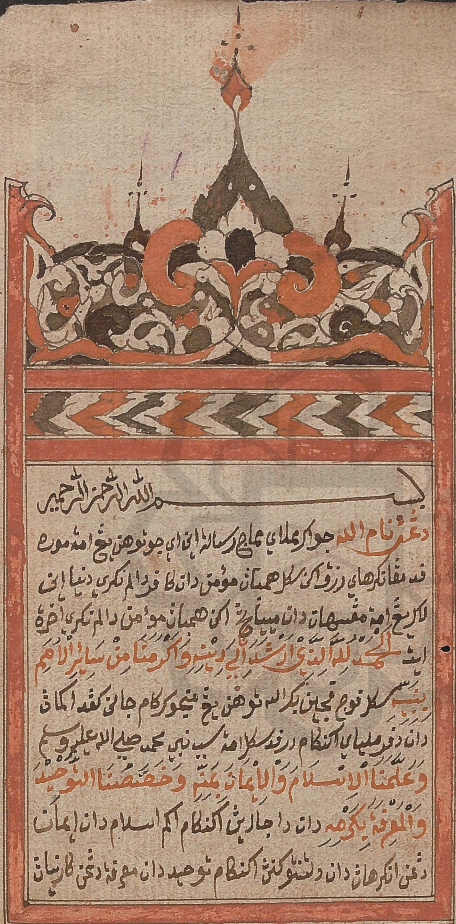 بسم الله الرحمن الرحيم
دڠن نام الله جواكو ملاي رسالة اين اي جو توهن يڠ امة موره
رزق اكن سكل همبان مؤمن دان كافر دالم نكري دنيا اين
لاكي يڠ امة مڠسيهان دان اكن همبان مؤمن دالم نكري اخرة
ايت الحمد لله الذي ارشدنا الي دينه واكرمنا من سائر الامم
بنبيه سكل فوج فجين بكي الله توهن يڠ كام جالن كڤد اكمان
دان دڤرملياي اكنكام درڤد سكل امة سبب نبي محمد صلي الله عليه وسلم
وعلمنا الاسلام والايمان بمنه وخصصنا التوحيد
والمعرفة بكرمه دان داجارڽ اكنكام اكم اسلام دان ايمان
دڠن انكرهان دان دتنتوكنڽ اكنكام توحيد دان معرفة دڠن كارنيان